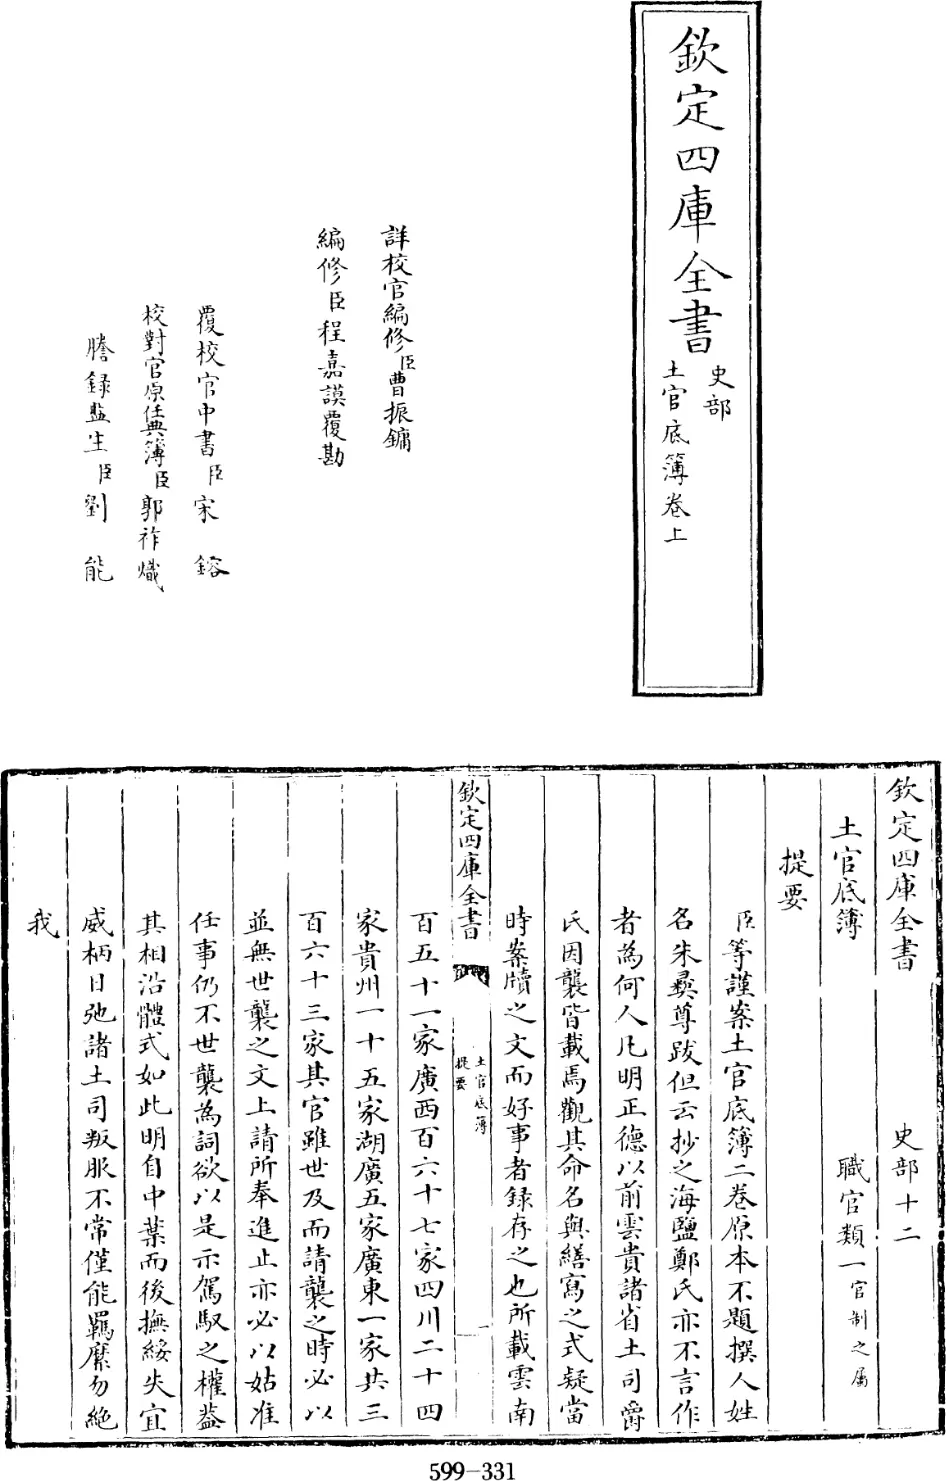 欽定四庫全書
史部
土官底簿卷上
詳校官編修臣曹振鏞
編修臣程嘉謨覆勘
覆校官中書臣宋鎔
校對官原任典簿臣郭祚熾
謄錄監生臣劉能
欽定四庫全書 史部十二
土官底簿 職官類一官制之屬
提要
臣等謹案土官底簿二卷原本不題撰人姓
名朱彞尊跋但云抄之海鹽鄭氏亦不言作
者為何人凡明正德以前雲貴諸省土司爵
氏因襲皆載焉觀其命名與繕寫之式疑當
時案牘之文而好事者録存之也所載雲南
欽定四庫全書
土官底簿
提要
一
百五十一家廣西百六十七家四川二十四
家貴州一十五家湖廣五家廣東一家共三
百六十三家其官雖世及而請襲之時必以
並無世襲之文上請所奉進止亦必以姑准
任事仍不世襲為詞欲以是示駕馭之權葢
其相沿體式如此明自中葉而後撫綏失宜
威柄日弛諸土司叛服不常僅能羈縻勿絶
我
599-331